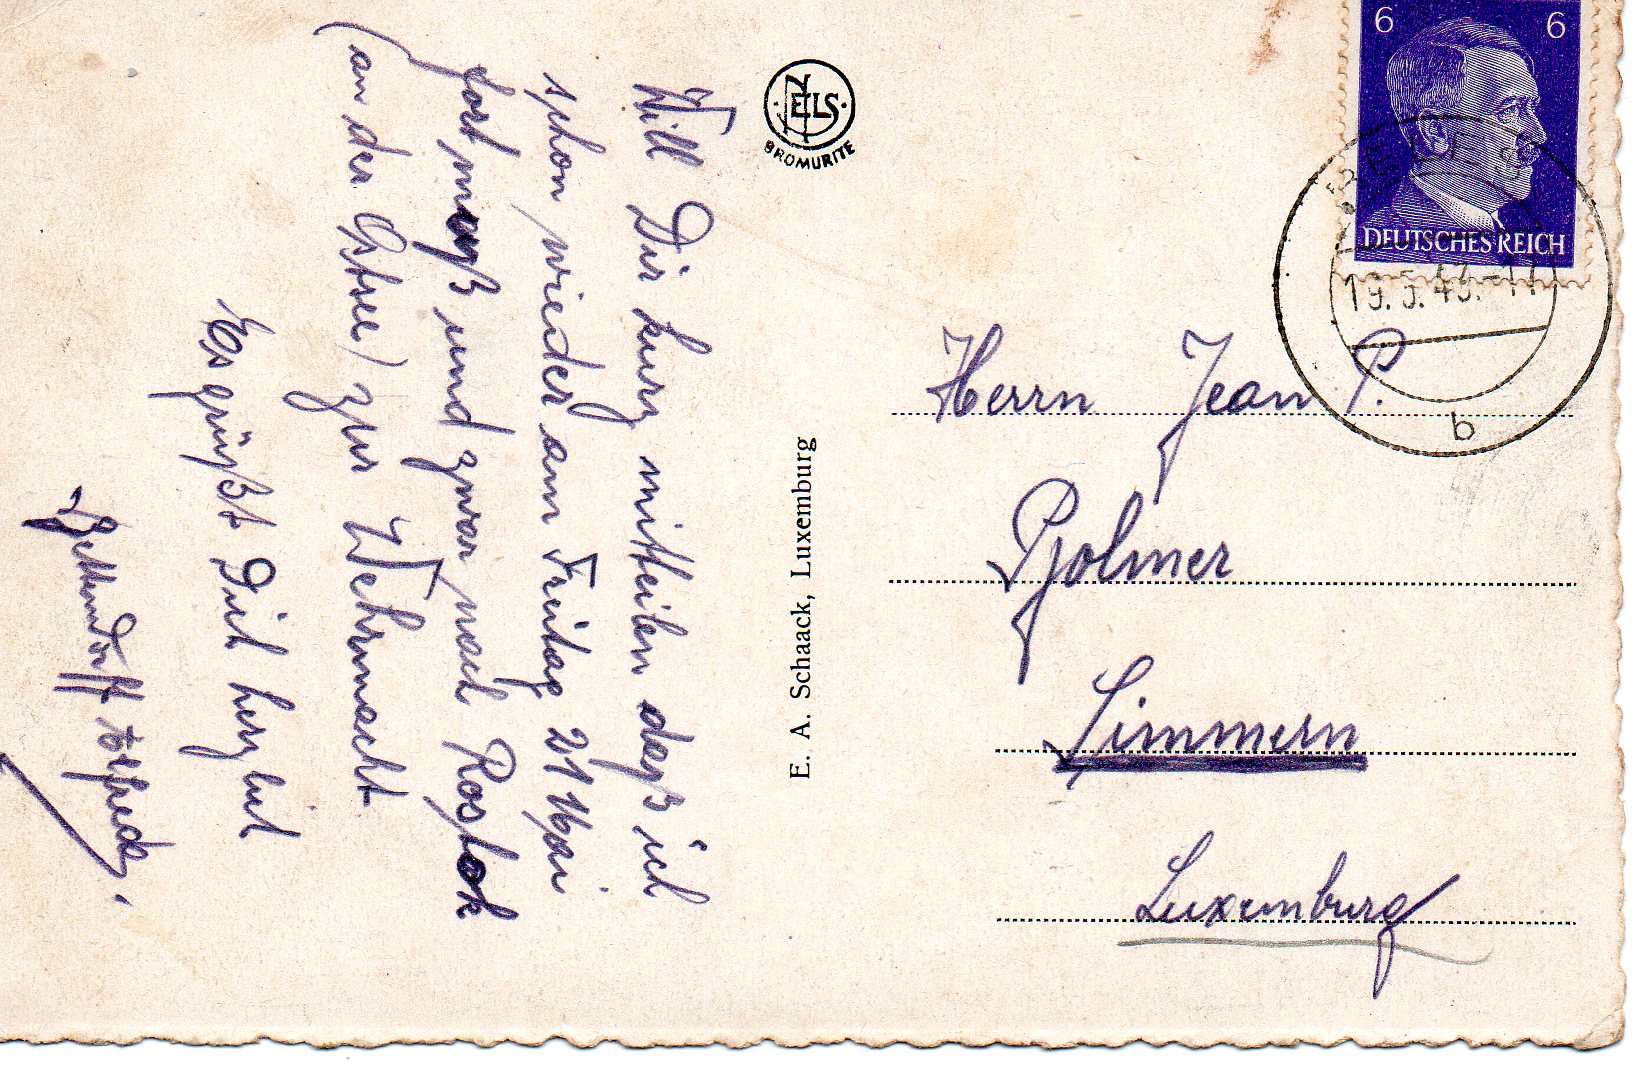 Will Dir kurz mitteilen daß ich
schon wieder am Freitag 21 Mai
fort muß und zwar nach Rostok
(an der Ostsee) zur Wehrmacht
Es grüßt Dich herzlich
NELS
BROMURITE
E. A. Schaack, Luxemburg
6 6
DEUTSCHES REICH
19.5.43.-17
b
Herrn Jean P.
Simmern
Luxemburg